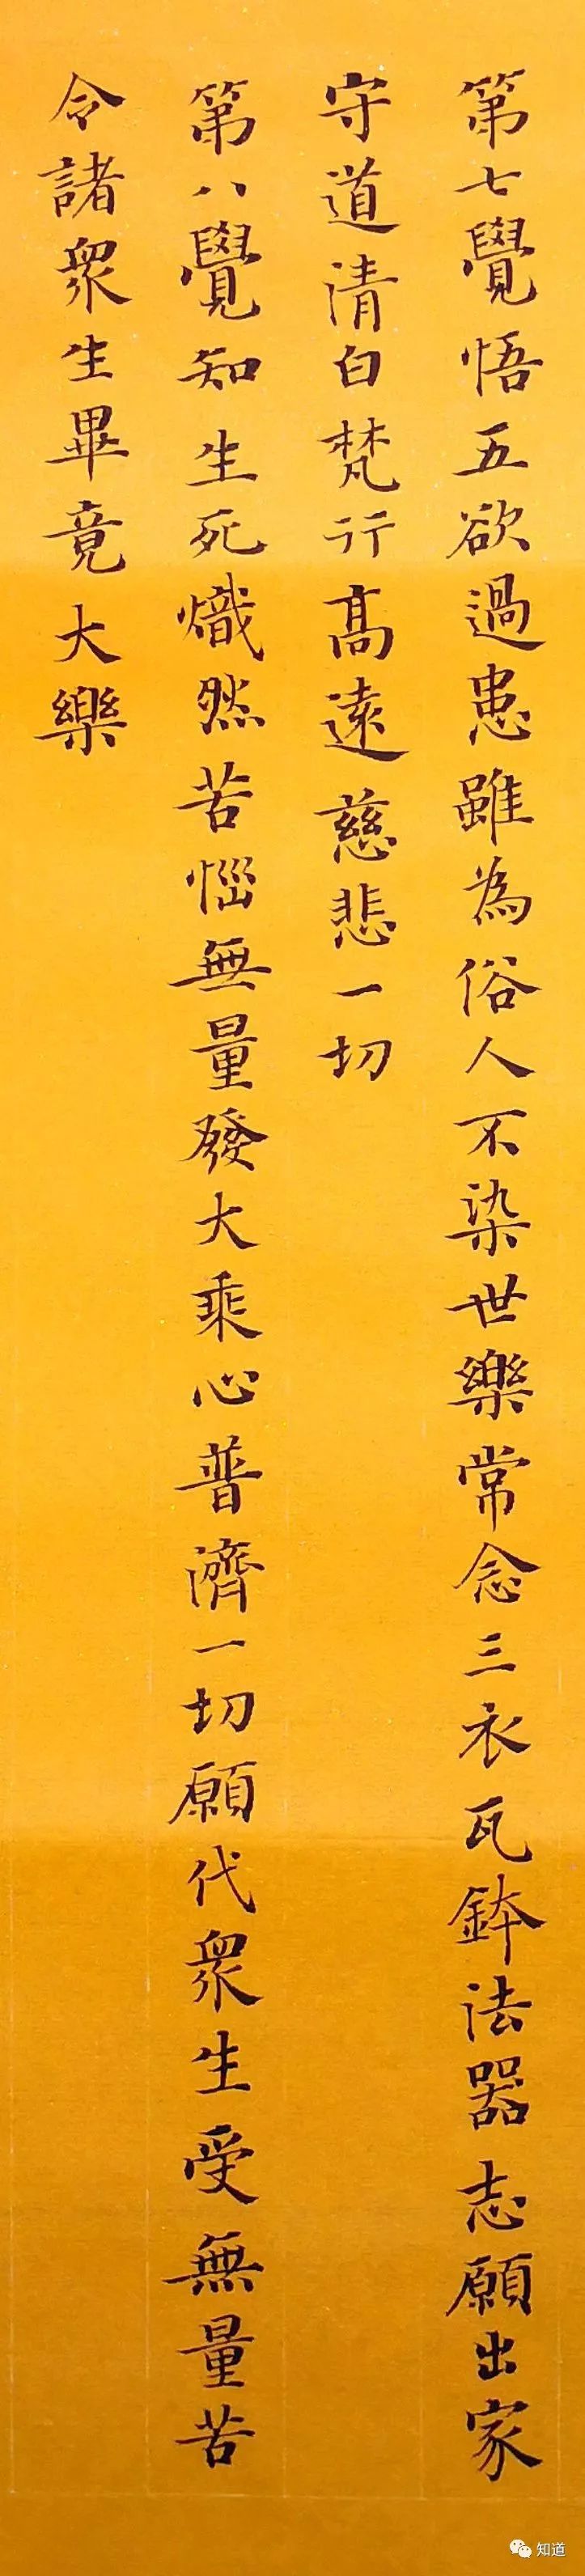 第七覺悟五欲過患雖為俗人不染世樂常念三衣瓦鉢法器志願出家
守道清白梵行高遠慈悲一切
第八覺知生死熾然苦惱無量發大乘心普濟一切願代衆生受無量苦
令諸衆生畢竟大樂
知道